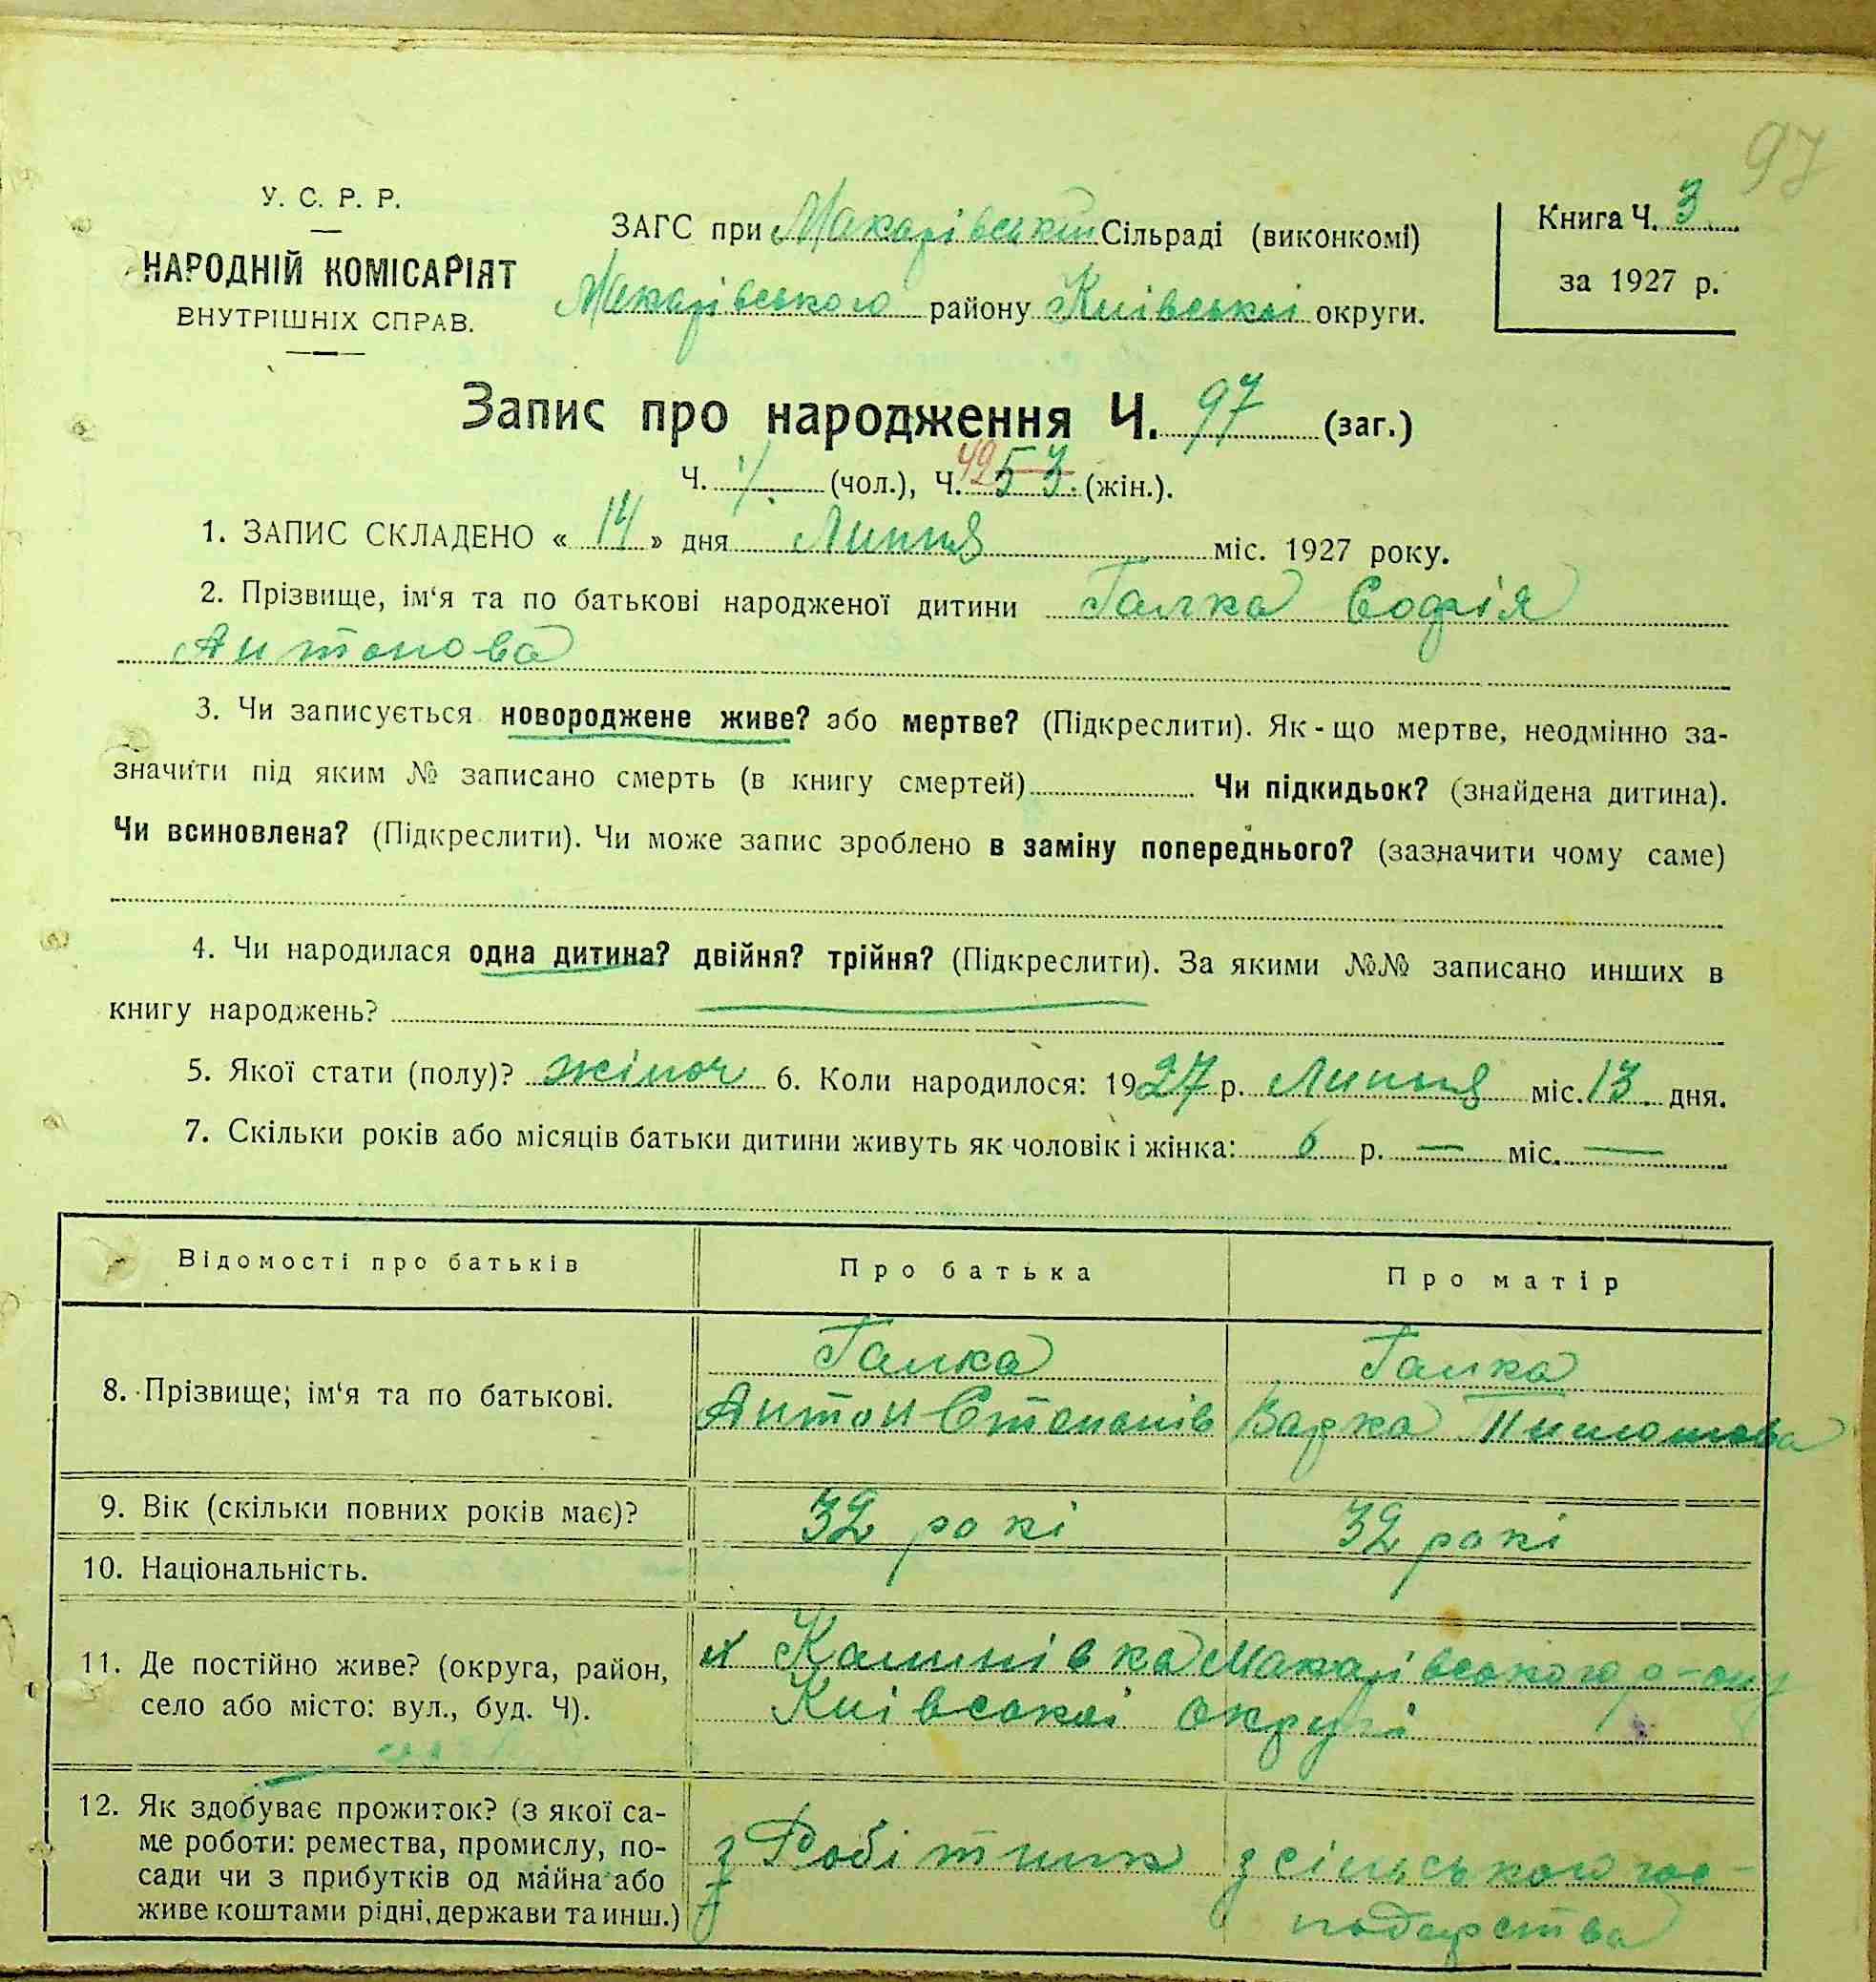 97
У. С. Р. Р.
НАРОДНІЙ КОМІСАРІЯТ
ВНУТРІШНІХ СПРАВ.
ЗАГС при Макарівський Сільраді (виконкомі)
Макарівського району Київської округи.
Книга Ч. 3
за 1927 р.
Запис про народження Ч. 97 (заг.)
Ч. (чол.), Ч. 49 53. (жін.).
1. ЗАПИС СКЛАДЕНО « 14 » дня Липня міс. 1927 року.
2. Прізвище, ім‘я та по батькові народженої дитини Галка Софія
Антонова
3. Чи записується новороджене живе? або мертве? (Підкреслити). Як-що мертве, неодмінно за-
значити під яким № записано смерть (в книгу смертей) Чи підкидьок? (знайдена дитина).
Чи всиновлена? (Підкреслити). Чи може запис зроблено в заміну попереднього? (зазначити чому саме)
4. Чи народилася одна дитина? двійня? трійня? (Підкреслити). За якими №№ записано инших в
книгу народжень?
5. Якої стати (полу)? жіноч 6. Коли народилося: 1927 р. Липня міс. 13. дня.
7. Скільки років або місяців батьки дитини живуть як чоловік і жінка: 6 р. — міс. —
Відомості про батьків Про батька Про матір
8. Прізвище; ім‘я та по батькові.
Галка Галка
Антон Степанів Варка Пилипова
9. Вік (скільки повних років має)? 32 рокі 32 рокі
10. Національність.
11. Де постійно живе? (округа, район,
село або місто: вул., буд. Ч).
х Калинівка Макарівського р-ону
Київської округи
12. Як здобуває прожиток? (з якої са-
ме роботи: ремества, промислу, по-
сади чи з прибутків од майна або
живе коштами рідні, держави та инш.)
Робітник з сільського гос-
подарства